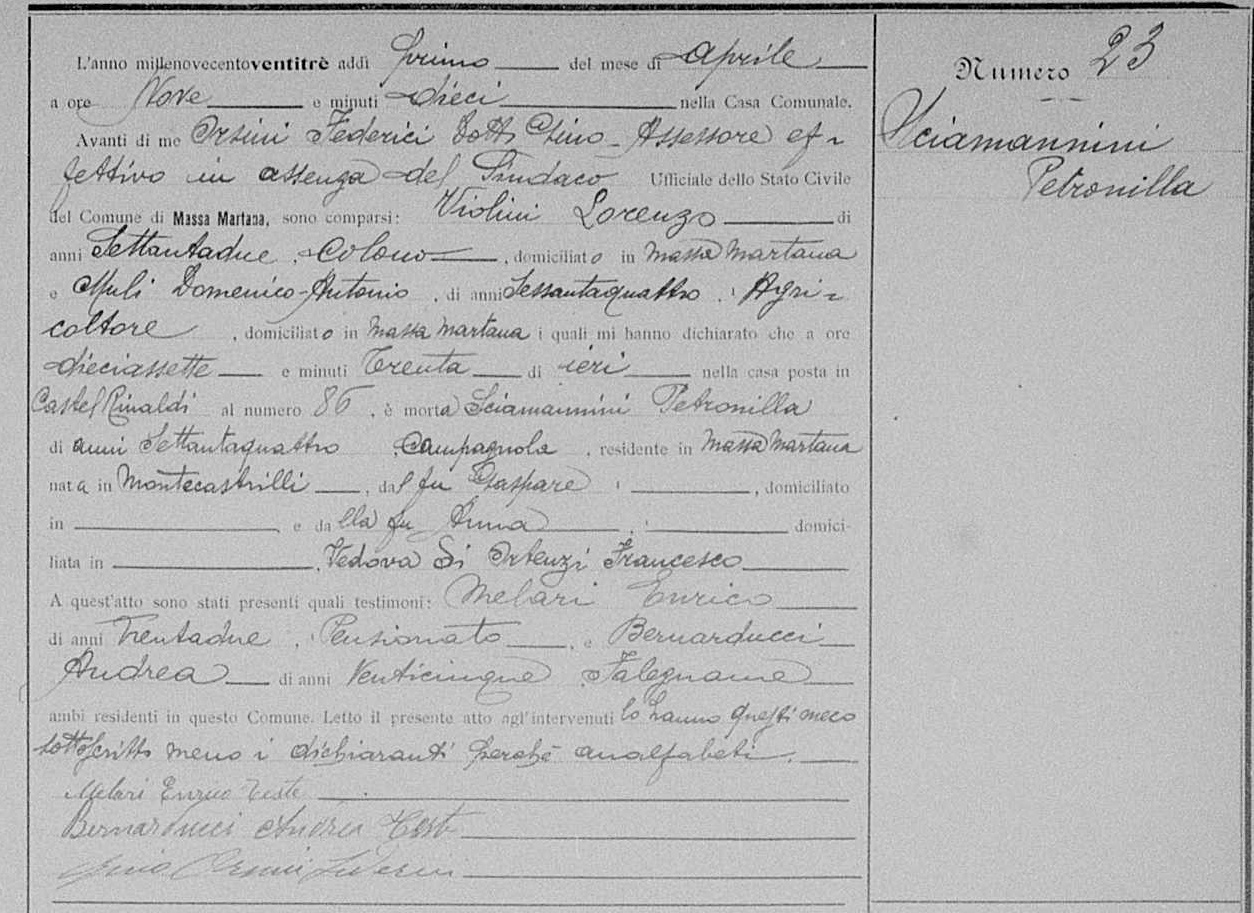 L'anno millenovecentoventitrè addì primo del mese di Aprile
a ore Nove e minuti dieci nella Casa Comunale.
Avanti di me Orsini Federici Dott. Gino Assessore ef-
fettivo in assenza del Sindaco Ufficiale dello Stato Civile
del Comune di Massa Martana, sono comparsi: Violini Lorenzo di
anni Settantadue, Colono, domiciliato in Massa Martana
e Muli Domenico Antonio, di anni Sessantaquattro, Agri-
coltore, domiciliato in Massa Martana i quali mi hanno dichiarato che a ore
dieciassette e minuti Trenta di ieri nella casa posta in
Castel Rinaldi al numero 86, è morta Sciamannini Petronilla
di anni Settantaquattro, Campagnola, residente in Massa Martana
nata in Montecastrilli, dal fu Gaspare, domiciliato
in e dalla fu Anna, domici-
liata in , Vedova di Ortenzi Francesco
A quest'atto sono stati presenti quali testimoni: Melari Enrico
di anni Trentadue, Pensionato, e Bernarducci
Andrea di anni Venticinque, Falegname
ambi residenti in questo Comune. Letto il presente atto agl'intervenuti lo hanno questi meco
sottoscritto meno i dichiaranti perchè analfabeti.
Melari Enrico Teste
Bernarducci Andrea Test
Gino Orsini
Numero 23
Sciamannini
Petronilla